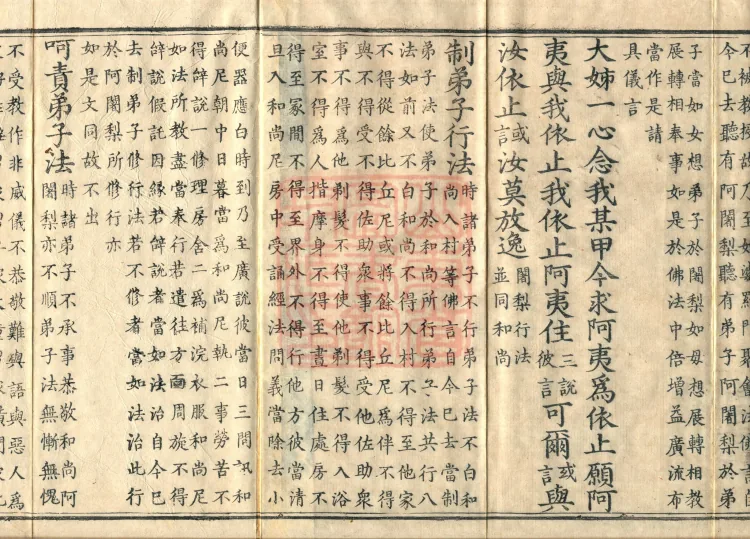 今已去聽有阿闍梨聽有弟子阿闍梨於弟
子當如女想弟子於闍梨如母想展轉相教
展轉相奉事如是於佛法中倍增益廣流布
當作是請
具儀言
大姊一心念我某甲今求阿夷為依止願阿
夷與我依止我依止阿夷住三說彼言可爾或言與
汝依止或言汝莫放逸闍梨行法並同和尚
制弟子行法時諸弟子不行弟子法不白和
尚入村等佛言自今已去當制
弟子法使弟子於和尚所行弟子法共行八
法如前又不白和尚不得入村不得至他家
不得從餘比丘尼或將餘比丘尼為伴不得
與不得受不得佐助眾事不得受他佐助眾
事不得為他剃髮不得使他剃髮不得入浴
室不得為人揩摩身不得至晝日住處房不
得至冢間不得至界外不得行他方彼當清
旦入和尚尼房中受誦經法問義當除去小
便器應白時到乃至廣說彼當日三問訊和
尚尼朝中日暮當為和尚尼執二事勞苦不
得辭說一修理房舍二為補浣衣服和尚尼
如法所教盡當奉行若遣往方面周旋不得
辭說假託因緣若辭說者當如法治自今已
去制弟子修行法若不修者當如法治此行
於阿闍梨所修行亦
如是文同故不出
呵責弟子法時諸弟子不承事恭敬和尚阿
闍梨亦不順弟子法無慚無愧
不受教作非威儀不恭敬難與語與惡人為